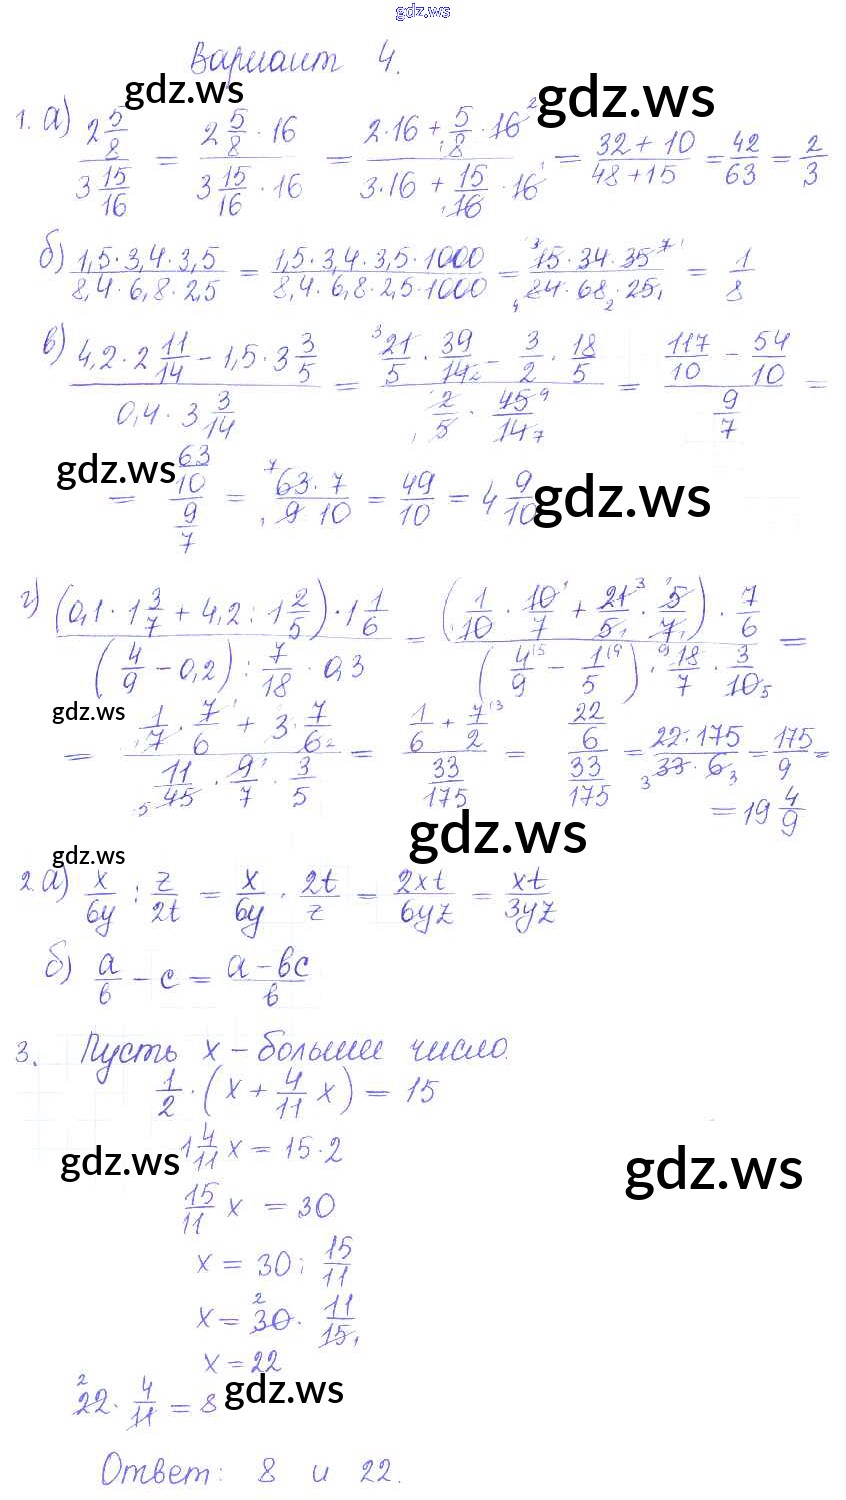 gdz.ws
Вариант 4.
gdz.ws gdz.ws
1. а) 2 5/8 / 3 15/16 = 2 5/8 · 16 / 3 15/16 · 16 = 2·16 + 5/8 · 16 / 3·16 + 15/16 · 16 = 32 + 10 / 48 + 15 = 42/63 = 2/3
б) 1,5·3,4·3,5 / 8,4·6,8·2,5 = 1,5·3,4·3,5·1000 / 8,4·6,8·2,5·1000 = 15·34·35 / 84·68·25 = 1/8
в) 4,2·2 11/14 – 1,5·3 3/5 / 0,4·3 3/14 = 21/5 · 39/14 – 3/2 · 18/5 / 2/5 · 45/14 = 117/10 – 54/10 / 9/7 =
gdz.ws gdz.ws
= 63/10 / 9/7 = 63·7 / 9 10 = 49/10 = 4 9/10
г) (0,1·1 3/7 + 4,2 : 1 2/5)·1 1/6 / (4/9 – 0,2) : 7/18 · 0,3 = (1/10 · 10/7 + 21/5 · 5/7) · 7/6 / (4/9 – 1/5) · 18/7 · 3/10 =
gdz.ws
= 1/7 · 7/6 + 3 · 7/6 / 11/45 · 9/7 · 3/5 = 1/6 + 7/2 / 33/175 = 22/6 / 33/175 = 22·175 / 33·6 = 175/9 =
= 19 4/9
gdz.ws
gdz.ws
2. а) x/6y : z/2t = x/6y · 2t/z = 2xt/6yz = xt/3yz
б) a/b – c = a – bc / b
3. Пусть x – большее число.
1/2 · (x + 4/11 x) = 15
1 4/11 x = 15·2
gdz.ws gdz.ws
15/11 x = 30
x = 30 : 15/11
x = 30 · 11/15
x = 22
22 · 4/11 = 8
gdz.ws
Ответ: 8 и 22.